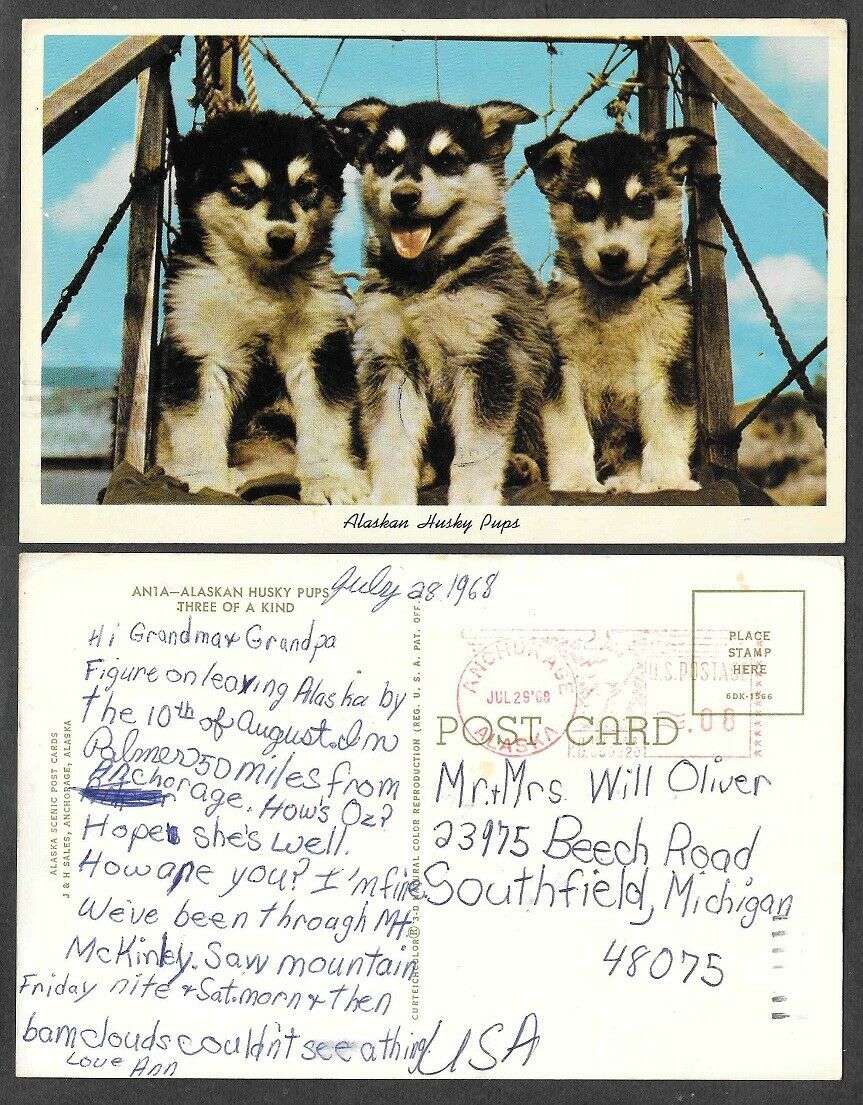 Alaskan Husky Pups
AN1A—ALASKAN HUSKY PUPS
THREE OF A KIND
July 28 1968
Hi Grandma & Grandpa
Figure on leaving Alaska by
the 10th of August. I'm
Palmer 50 miles from
Anchorage. How's Oz?
Hope she's well.
How are you? I'm fine.
We've been through Mt.
McKinley. Saw mountain
Friday nite & Sat. morn & then
bam clouds couldn't see a thing.
Love Ann
ALASKA SCENIC POST CARDS
J & H SALES, ANCHORAGE, ALASKA
CURTEICHCOLOR® 3-D NATURAL COLOR REPRODUCTION (REG. U. S. A. PAT. OFF.
PLACE
STAMP
HERE
6DK-1566
ANCHORAGE
JUL 29 '68
ALASKA
U.S. POSTAGE
.08
POST CARD
Mr. & Mrs Will Oliver
23975 Beech Road
Southfield, Michigan
48075
USA